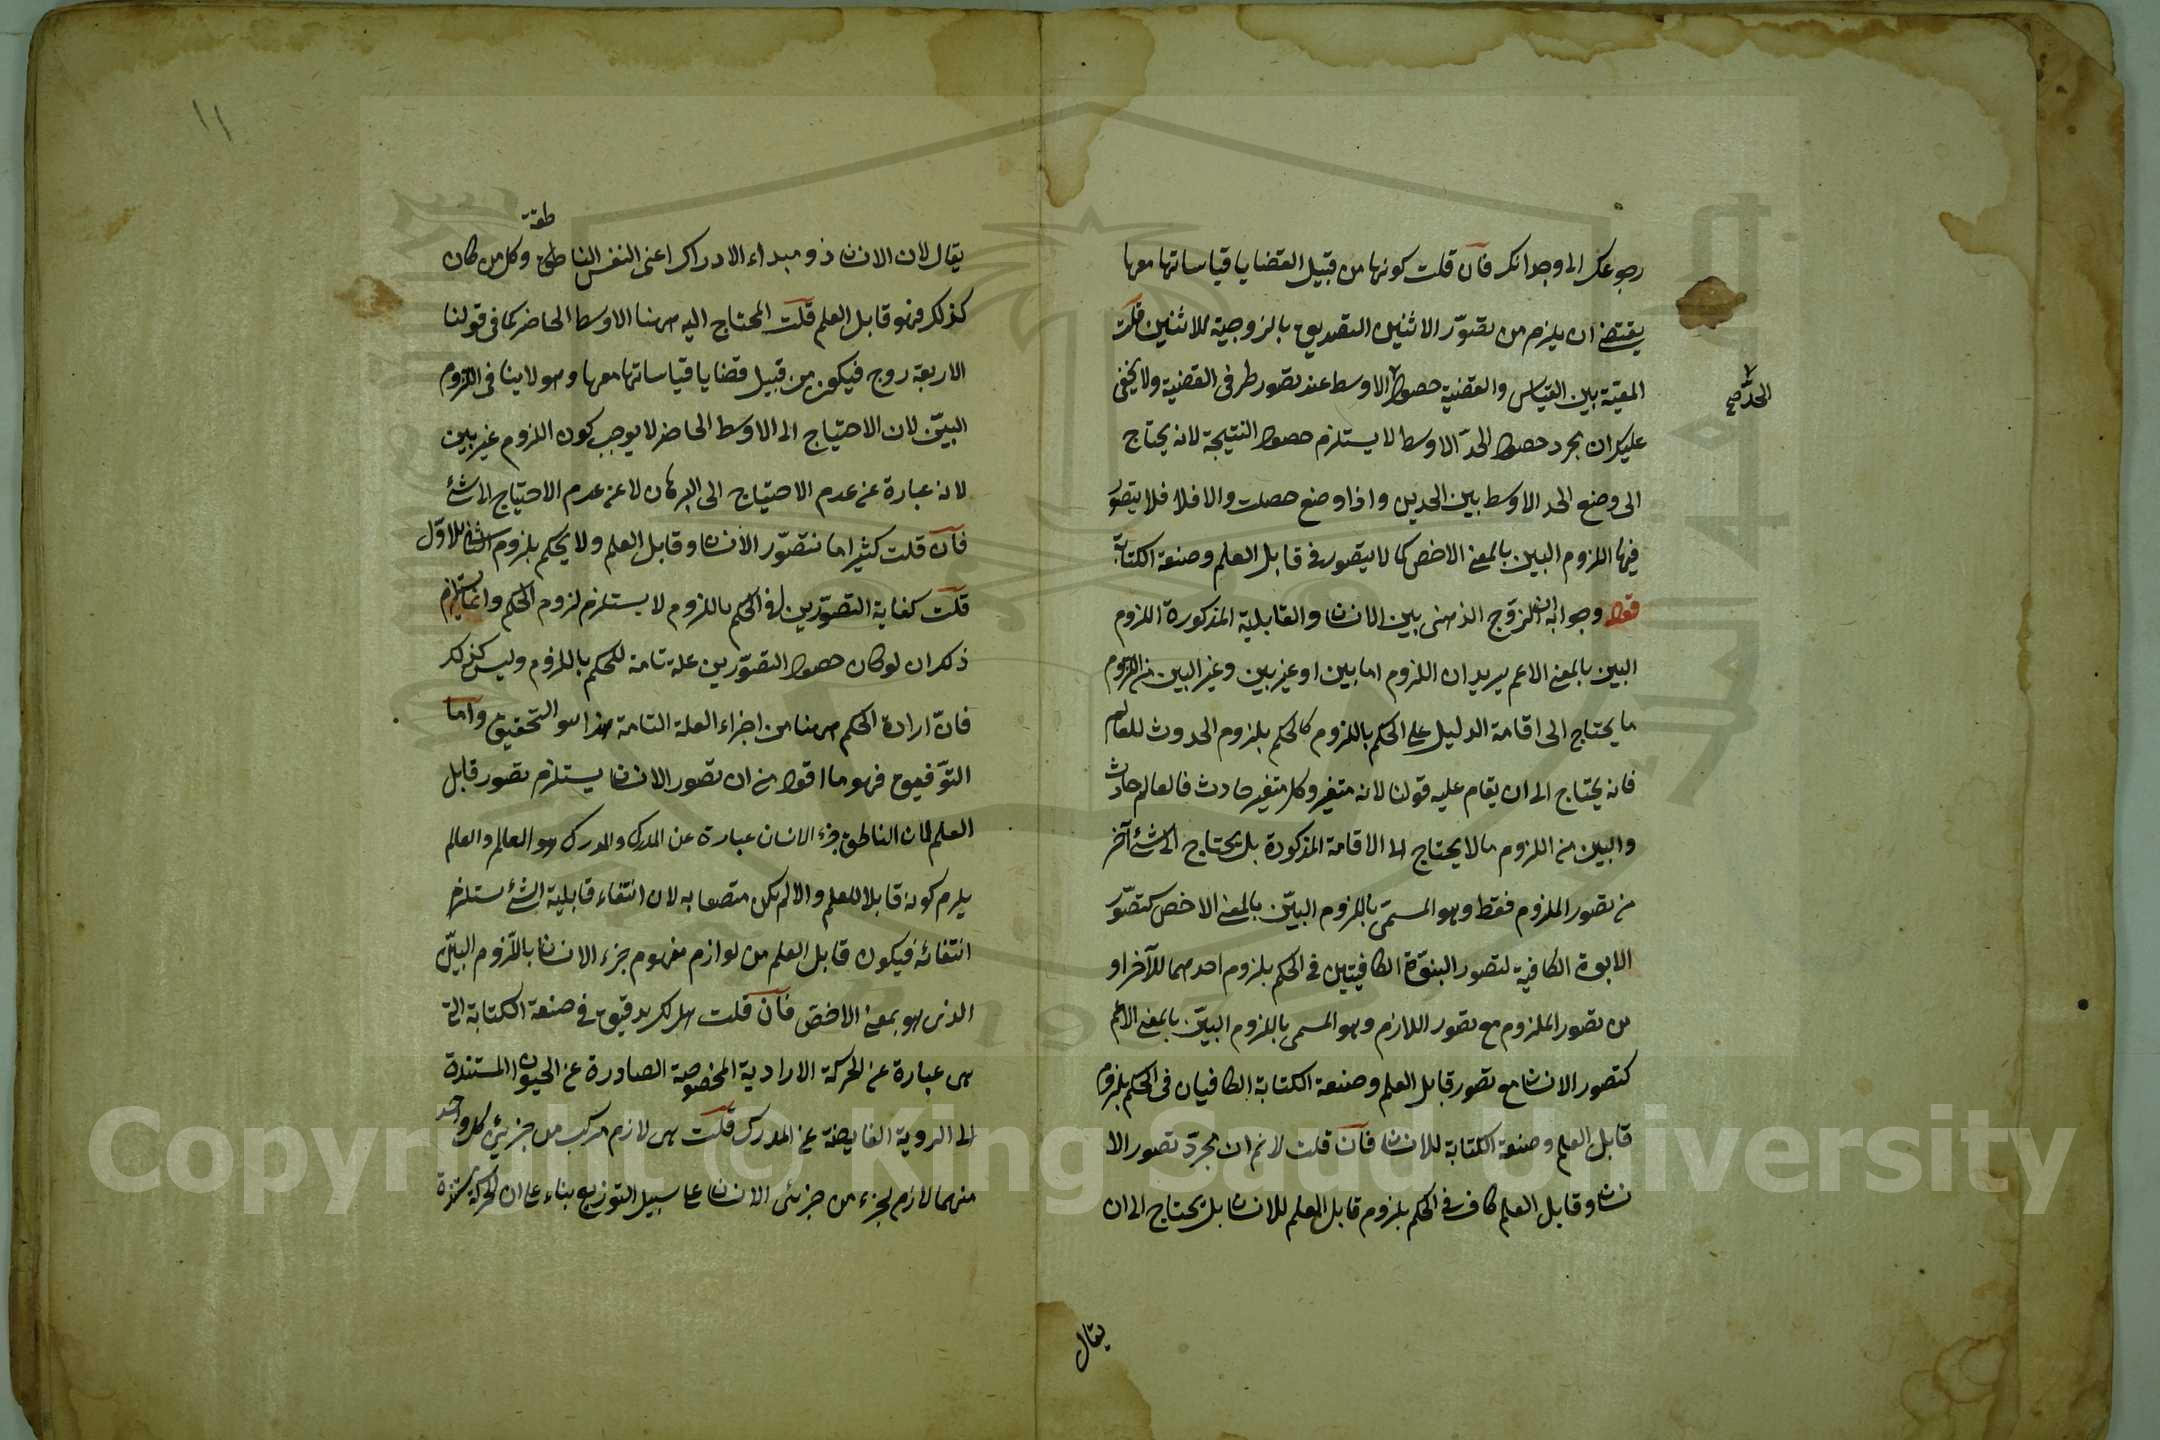 رجوعك الى وجدانك فان قلت كونها من قبيل القضايا قياساتها معها
يقتضى ان يلزم من تصوّر الاثنين التصديق بالزوجية للاثنين قلت
المعيّة بين القياس والقضية حصول الاوسط عند تصور طرفى القضية ولا يخفى
الحدّ صح
عليك ان مجرد حصول الحدّ الاوسط لا يستلزم حصول النتيجة لانه يحتاج
الى وضع الحد الاوسط بين الحدين واذا وضع حصلت والا فلا فلا يتصوّر
فيها اللزوم البين بالمعنى الاخص كما لا يتصور فى قابل العلم وصنعة الكتابة
قوله وجوابه الذهنى بين الانسان والقابلية المذكورة اللزوم
البين بالمعنى الاعم يريد ان اللزوم اما بين او غير بين وغير البين من اللزوم
ما يحتاج الى اقامة الدليل على الحكم باللزوم كالحكم بلزوم الحدوث للعالم
فانه يحتاج الى ان يقام عليه قولنا لانه متغير وكل متغير حادث فالعالم حادث
والبين من اللزوم ما لا يحتاج الى الاقامة المذكورة بل يحتاج الى شئ آخر
من تصور الملزوم فقط وهو المسمّى باللزوم البيّن بالمعنى الاخص كتصوّر
الابوة الكافية لتصور البنوّة الكافيتين فى الحكم بلزوم احدهما للآخر او
من تصور الملزوم مع تصور اللازم وهو المسمى باللزوم البيّن بالمعنى الاعم
كتصور الانسان مع تصور قابل العلم وصنعة الكتابة الكافيان فى الحكم بلزوم
قابل العلم وصنعة الكتابة للانسان فان قلت لا نم ان مجرد تصور الا
نسان وقابل العلم كاف فى الحكم بلزوم قابل العلم للانسان بل يحتاج الى ان
يقال
١١
طقة
يقال لان الانسان ذو مبداء الادراك اعنى النفس الناطق وكل من كان
كذلك فهو قابل العلم قلت المحتاج اليه ههنا الاوسط الحاضر كما فى قولنا
الاربعة زوج فيكون من قبيل قضايا قياساتها معها وهو لا ينافى اللزوم
البيّن لان الاحتياج الى الاوسط الحاضر لا يوجب كون اللزوم غير بين
لانه عبارة عن عدم الاحتياج الى البرهان لا عن عدم الاحتياج الى شئ
فان قلت كثيرا ما نتصوّر الانسان وقابل العلم ولا يحكم بلزوم الثانى للاوّل
قلت كفاية التصوّرين فى الحكم باللزوم لا يستلزم لزوم الحكم وانما يستلزم
ذلك ان لو كان حصول التصوّرين علة تامة للحكم باللزوم وليس كذلك
فانّ ارادة الحكم ههنا من اجزاء العلة التامة هذا هو التحقيق واما
التوفيق فهو ما اقول من ان تصور الانسان يستلزم تصور قابل
العلم لان الناطق جزء الانسان عبارة عن المدرك والمدرك هو العالم والعالم
يلزم كونه قابلا للعلم والا لم يكن متصفا به لان انتفاء قابلية الشئ يستلزم
انتفائه فيكون قابل العلم من لوازم مفهوم جزء الانسان باللزوم البيّن
الذى هو بمعنى الاخص فان قلت هل لك تدقيق فى صنعة الكتابة التى
هى عبارة عن الحركة الارادية المخصوصة الصادرة عن الحيوان المستندة
الى الروية الفايضة عن المدرك قلت هى لازم مركب من جزئين كل واحد
منهما لازم لجزء من جزئى الانسان على سبيل التوزيع بناء على ان الحركة
Copyright © King Saud University